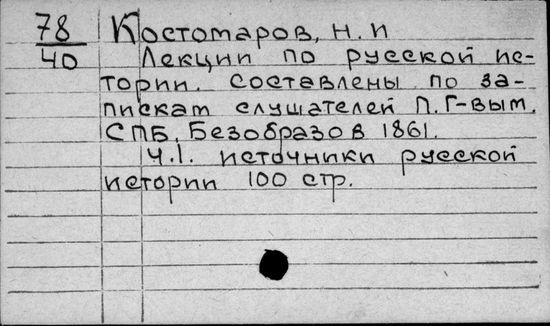 78 Костомаров, Н. И
40 Лекции по русской ис-
тории. составлены по за-
пискам слушателей П. Г-вым.
СПБ. Безобразов 1861.
Ч.1. источники русской
истории 100 стр.